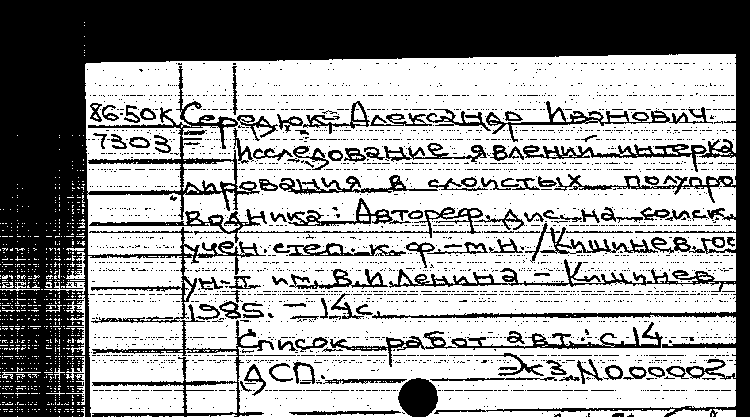 86-50К Середюк, Александр Иванович.
7303 Исследование явлений интерка
лирования в слоистых полупро
водника: Автореф. дис. на соиск.
учен. степ. к. ф.-м.н. / Кишинев. гос
ун-т им. В.И.Ленина. - Кишинев,
1985. - 14с.
Список работ авт.: с.14.
ДСП. Экз.N00002.